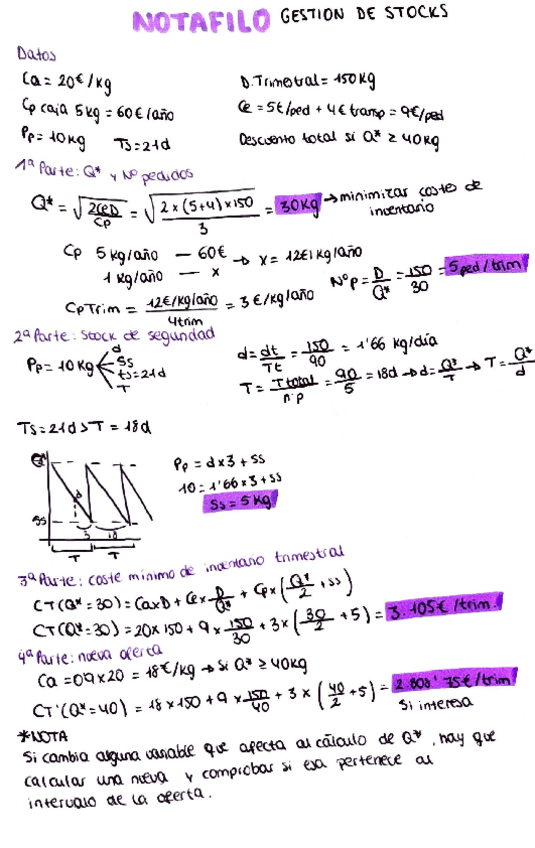 NOTAFILO GESTION DE STOCKS
Datos
Ca = 20€/kg
D.Trimestral = 150kg
Cp caja 5kg = 60€/año
Ce = 5€/ped + 4€ transp = 9€/ped
Pp = 10kg Ts = 21d
Descuento total si Q* ≥ 40kg
1ª Parte: Q* y Nº pedidos
Q* = √(2CeD/Cp) = √(2 x (5+4) x 150/3) = 30kg → minimizar costes de inventario
Cp 5kg/año — 60€
1kg/año — x → x = 12€/kg/año
CpTrim = 12€/kg/año / 4trim = 3€/kg/año
Nºp = D/Q* = 150/30 = 5ped/trim
2ª Parte: Stock de seguridad
Pp = 10kg d
SS
ts = 21d
T
d = dt/Tt = 150/90 = 1'66 kg/día
T = Ttotal/n·p = 90/5 = 18d → d = Q*/T → T = Q*/d
Ts = 21d > T = 18d
Q*
SS
3 18
T T
Pp = d x 3 + SS
10 = 1'66 x 3 + SS
SS = 5kg
3ª Parte: coste mínimo de inventario trimestral
CT(Q* = 30) = Ca x D + Ce x D/Q* + Cp x (Q*/2 + SS)
CT(Q* = 30) = 20 x 150 + 9 x 150/30 + 3 x (30/2 + 5) = 3.105€/trim.
4ª Parte: nueva oferta
Ca = 0'9 x 20 = 18€/kg → Si Q* ≥ 40kg
CT'(Q* = 40) = 18 x 150 + 9 x 150/40 + 3 x (40/2 + 5) = 2.808'75€/trim
Si interesa
*NOTA
Si cambia alguna variable que afecta al cálculo de Q*, hay que
calcular una nueva y comprobar si esa pertenece al
intervalo de la oferta.